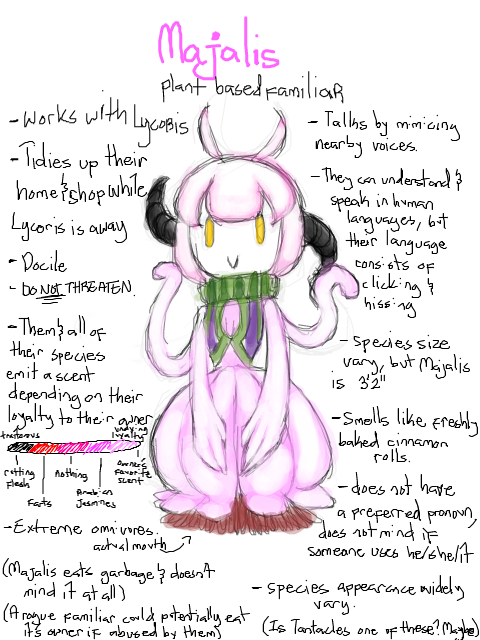 Majalis
plant based familiar
- works with Lycoris
- Tidies up their
home & shop while
Lycoris is away
- Docile
- DO NOT THREATEN.
- Them & all of
their species
emit a scent
depending on their
loyalty to their owner
traitorous
undying
loyalty
rotting
flesh
Farts
nothing
Arabian
Jasmines
owner's
favorite
scent
- Extreme omivores.
actual mouth
(Majalis eats garbage & doesn't
mind it at all)
(A rogue familiar could potentially eat
it's owner if abused by them)
- Talks by mimicing
nearby voices.
- They can understand &
speak in human
languages, but
their language
consists of
clicking &
hissing
- Species size
vary, but Majalis
is 3'2"
- Smells like freshly
baked cinnamon
rolls.
- does not have
a preferred pronoun,
does not mind if
someone uses he/she/it
- species appearance widely
vary.
(Is Tantacles one of these? Maybe)